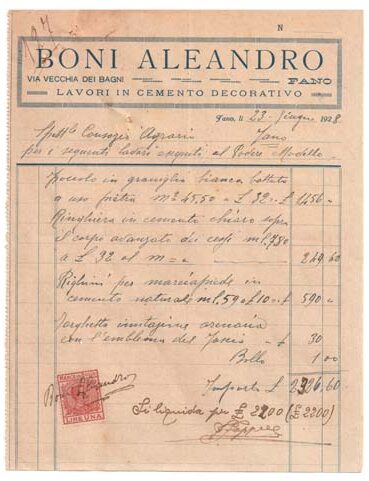 127
N
BONI ALEANDRO
VIA VECCHIA DEI BAGNI FANO
LAVORI IN CEMENTO DECORATIVO
Fano, li 23 Giugno 1928
Spett.le Consorzio Agrario Fano
per i seguenti lavori eseguiti al Podere Modello
Zoccolo in graniglia bianca battuta
a uso pietra m² 45,50 a £ 32 = £ 1456 =
Ringhiera in cemento chiaro sopra
il corpo avanzato dei cessi ml. 7,80
a £ 32 al m = 249 60
Righini per marciapiede in
cemento naturale ml. 59 a £ 10 = £ 590 =
Targhetta imitazione arenaria
con l'emblema del Fascio £ 30
Bollo 1 00
Importo £ 2326,60
Si liquida per £ 2200 (£ 2200)
Boni Aleandro
LIRE UNA